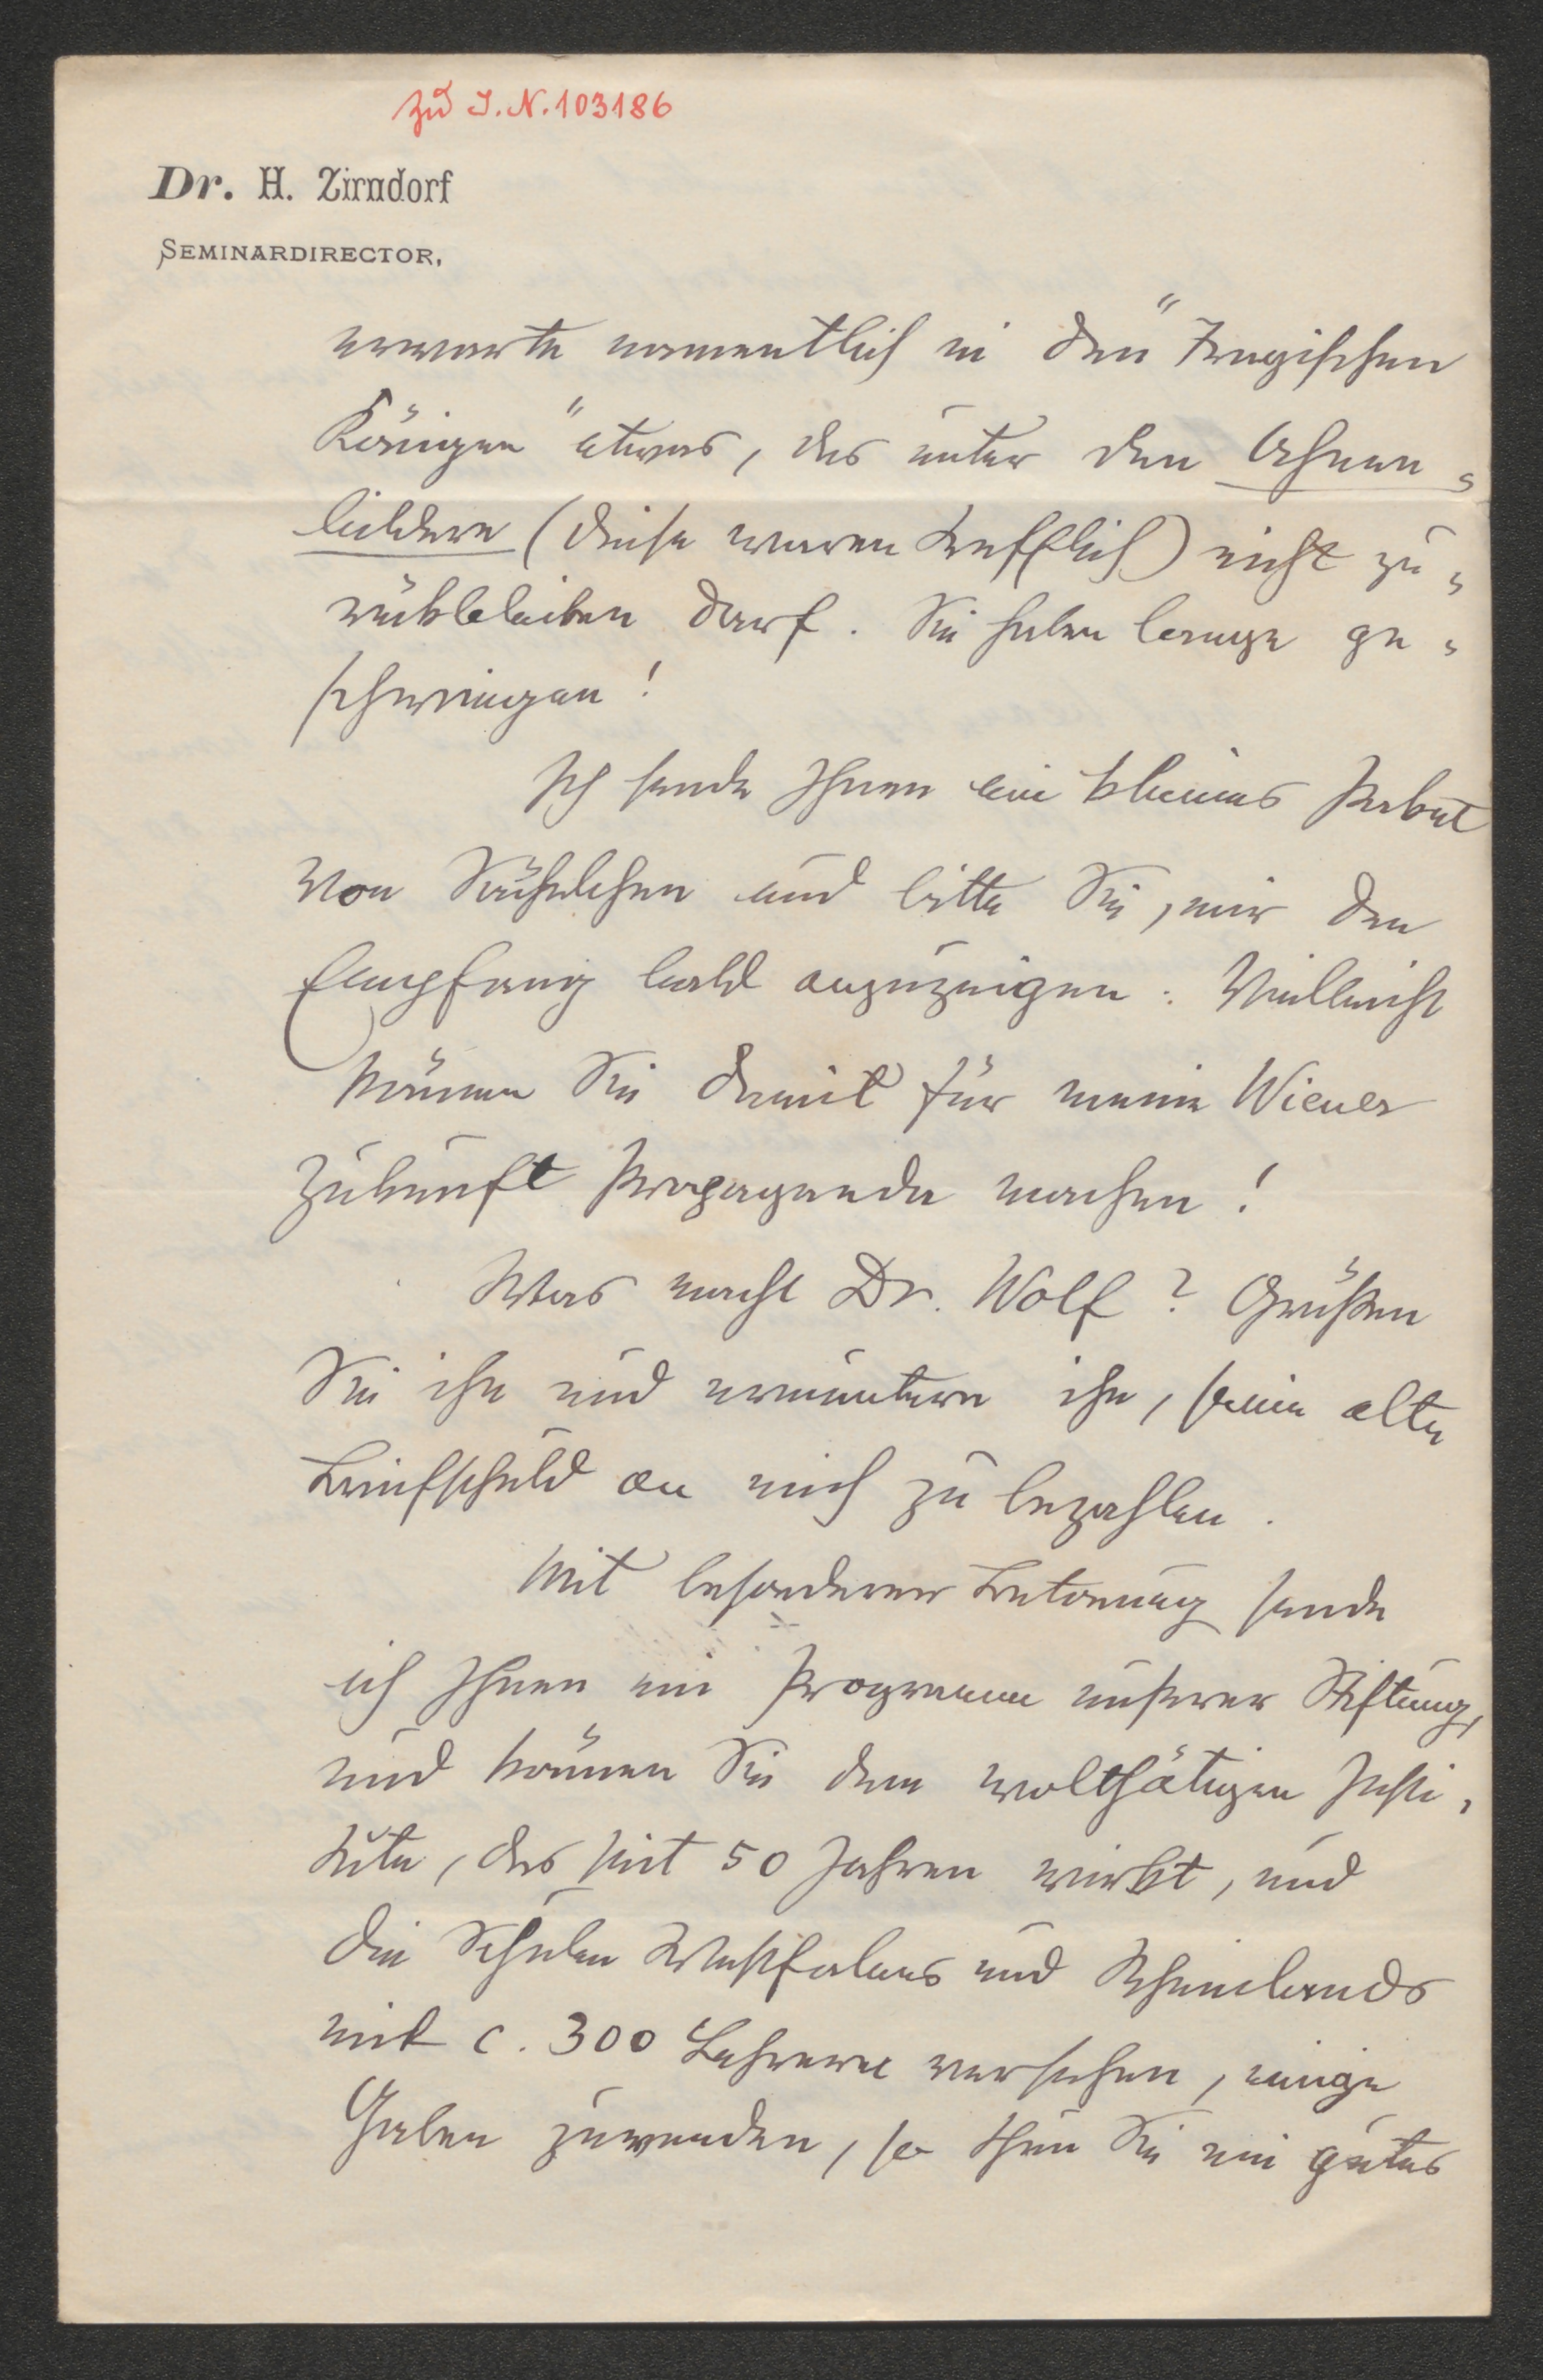 Zu I.N. 103186
Dr. H. Zirndorf
SEMINARDIRECTOR,
erwarte namentlich in den "Tragischen
Königen" etwas, das unter den Ahnen-
bildern (diese waren trefflich) nicht zu-
rückbleiben darf. Sie haben lange ge-
schwiegen!
Ich sende Ihnen ein kleines Paket
von Sächelchen und bitte Sie, mir den
Empfang bald anzuzeigen. Vielleicht
können Sie damit für meine Wiener
Zukunft Propaganda machen!
Was macht Dr. Wolf? Grüßen
Sie ihn und ermuntern ihn, seine alte
Briefschuld an mich zu bezahlen.
Mit besonderer Betonung sende
ich Ihnen ein Programm unserer Stiftung,
und können Sie dem wolthätigen Insti-
tute, das seit 50 Jahren wirkt, und
die Schulen Westfalens und Rheinlands
mit c. 300 Lehrern versehen, einige
Gaben zuwenden, so thun Sie ein gutes